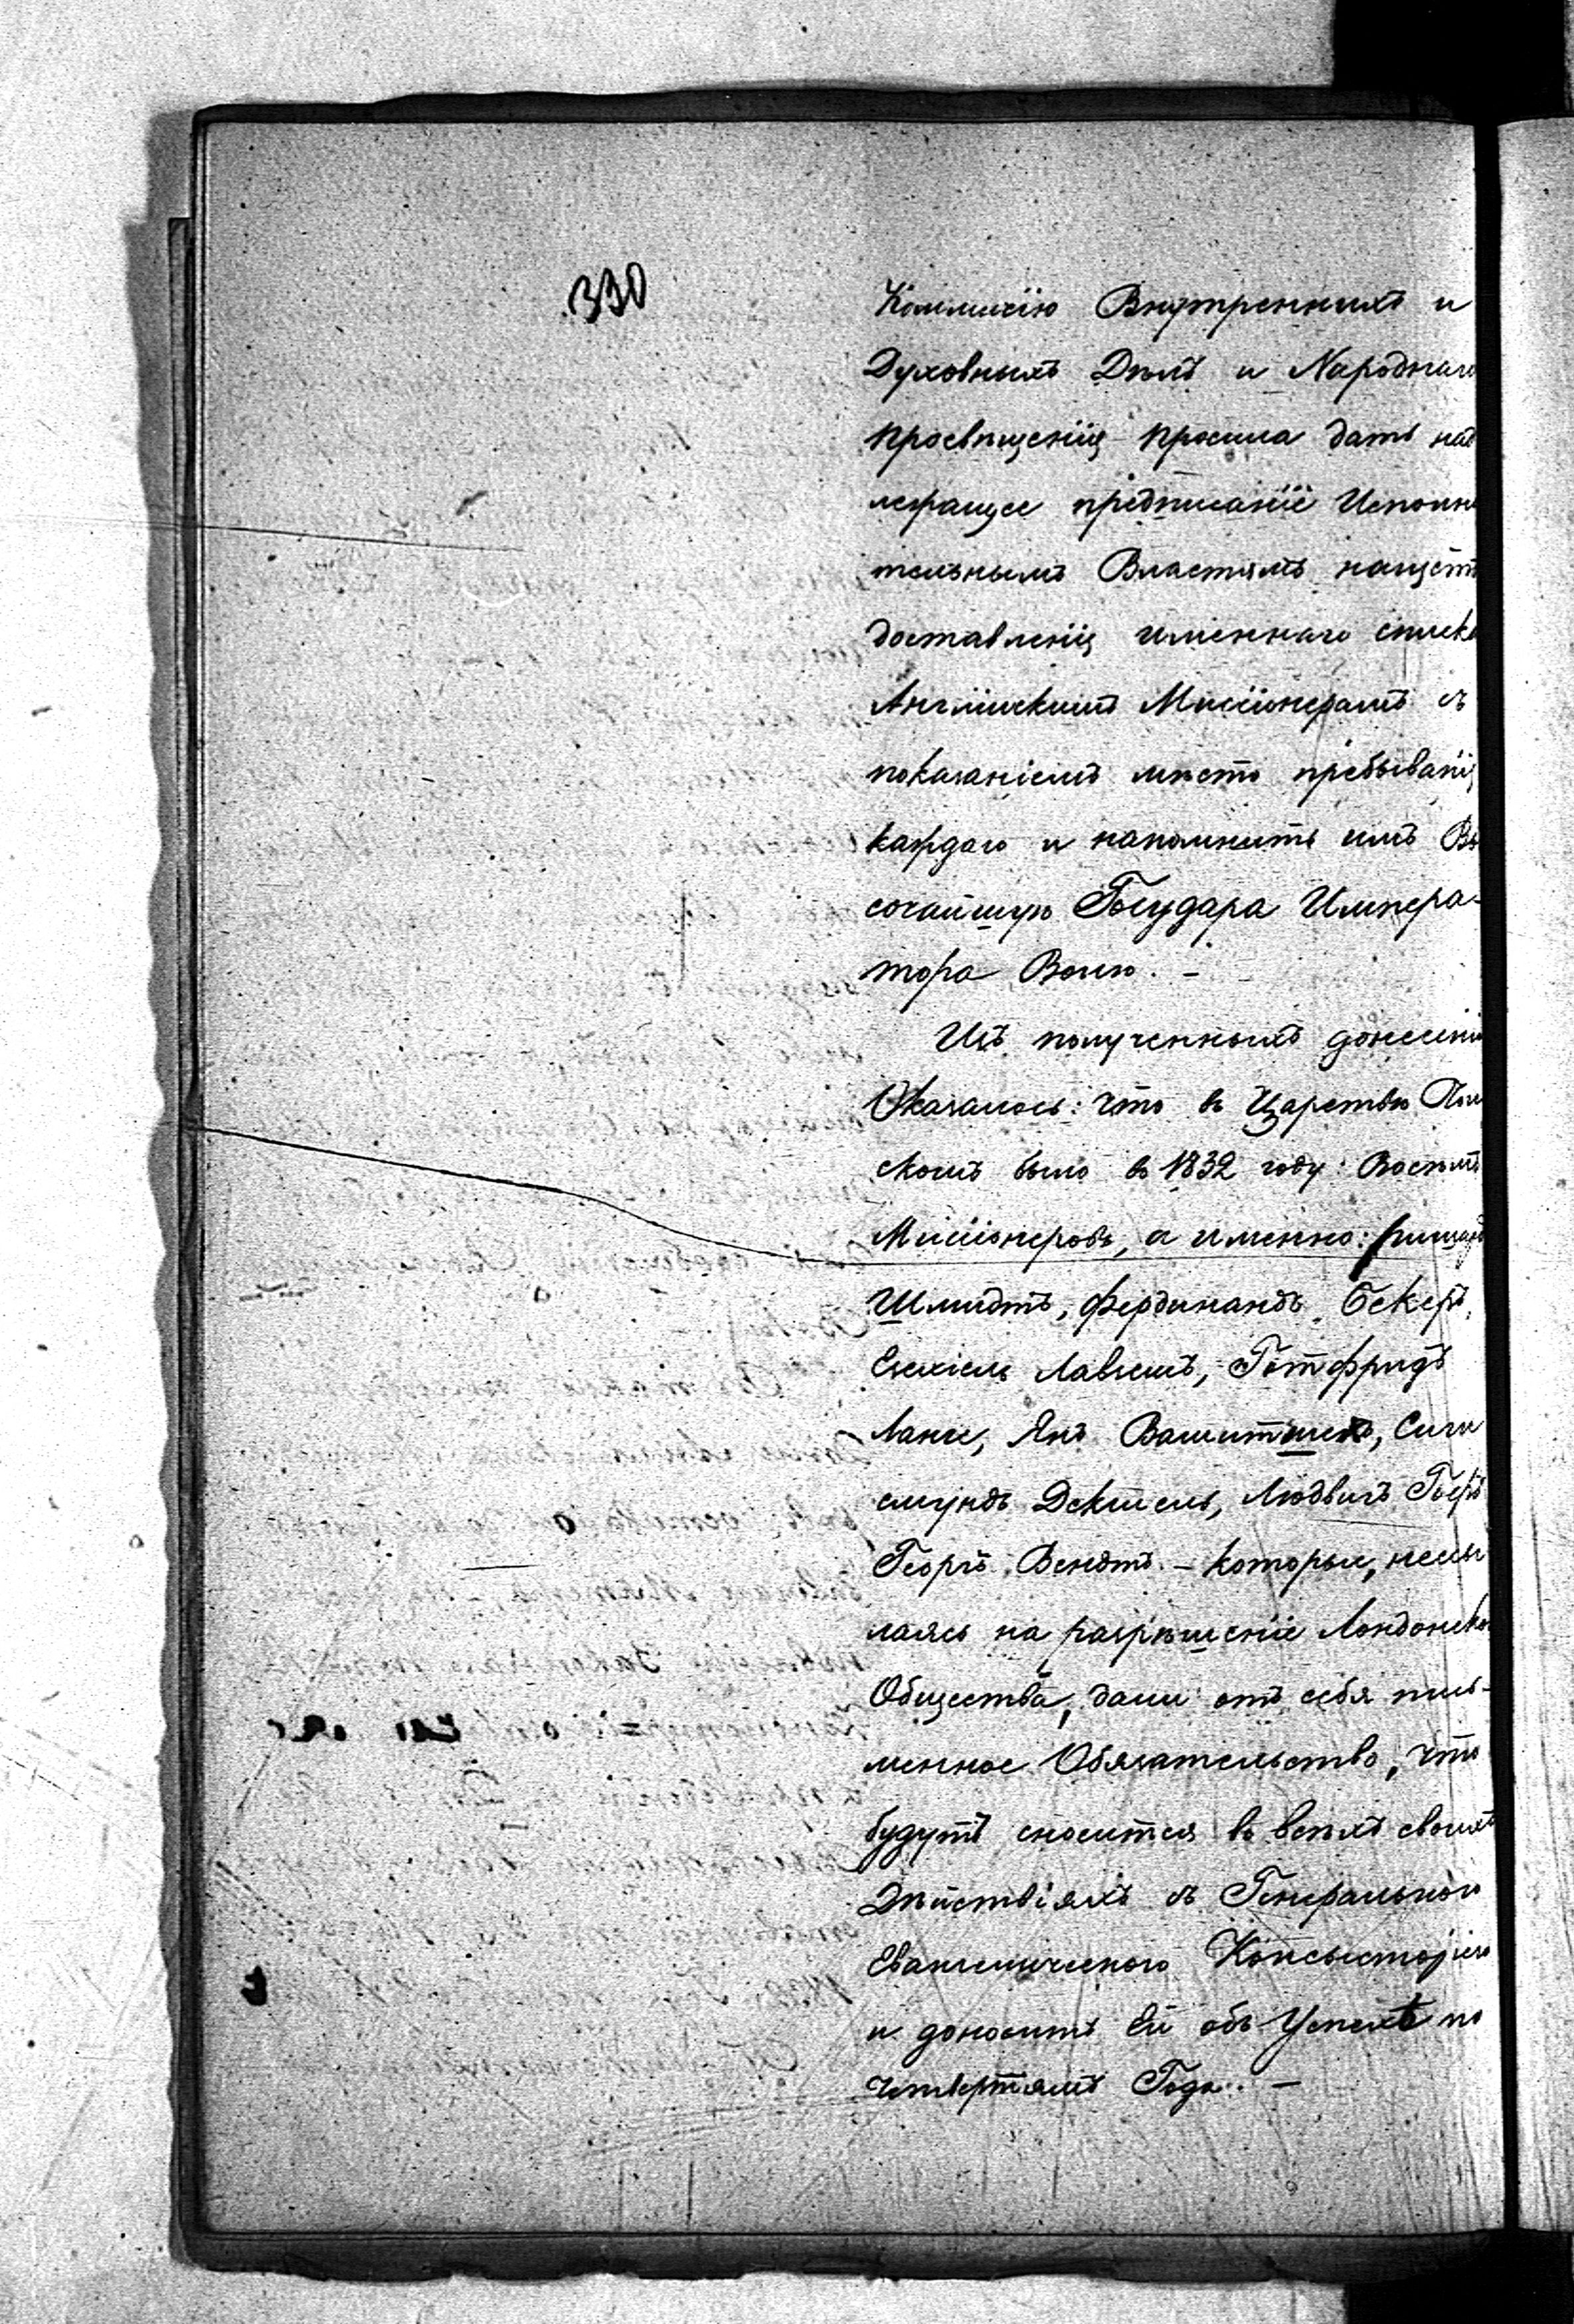 330
Коммисію Внутренныхъ и
Духовныхъ Дѣлъ и Народнаго
просвѣщенія просила дать над
лежащее прѣдписаніе Исполни
тельнымъ Властямъ нащетъ
доставленія именнаго списка
Англійскимъ Миссіонерамъ съ
показаніемъ мѣсто прѣбыванія
каждаго и напомнить имъ Вы
сочайшую Государа Импера-
тора Волю. –
Изъ полученныхъ донесеній
Оказалось: что въ Царствѣ Поль
скомъ было въ 1832 году: Восемъ
Миссіонеровъ, а именно:
Шмидтъ, Фердинандъ Бекеръ,
Лавренъ, Готфридъ
Ланге, Янъ Сиги
смундъ Дектель, Людвигъ
Георгъ Вендтъ. – которые, нессы
лаясь на разрѣшеніе Лондонско
Общества, дали отъ себя пись-
менное Обязательство, что
будутъ сносится въ всѣхъ своихъ
Дѣйствіяхъ съ Генеральною
Евангелическою Консысторіею
и доносить Ей объ Успехѣ по
четвертямъ Года. –